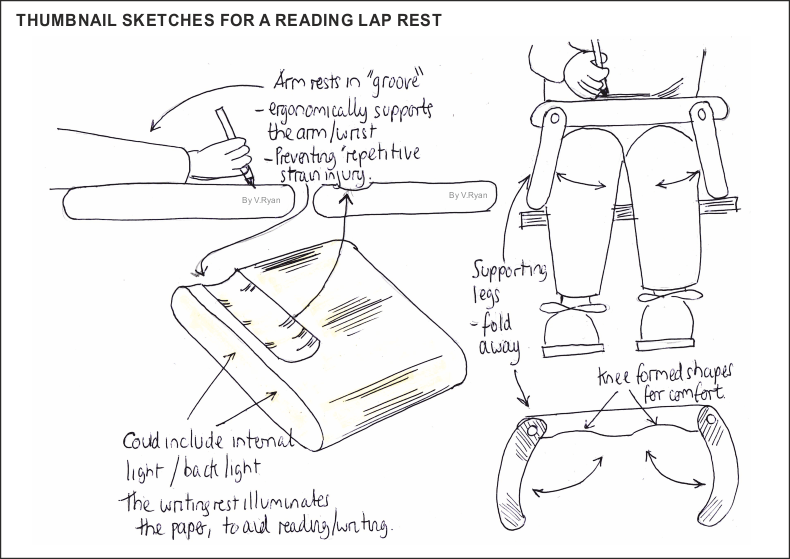 THUMBNAIL SKETCHES FOR A READING LAP REST
Arm rests in "groove"
- ergonomically supports
the arm/wrist
- Preventing "repetitive
strain injury.
By V.Ryan
By V.Ryan
Supporting
legs
- fold
away
Knee formed shapes
for comfort.
Could include internal
light / back light
The writing rest illuminates
the paper, to aid reading/writing.